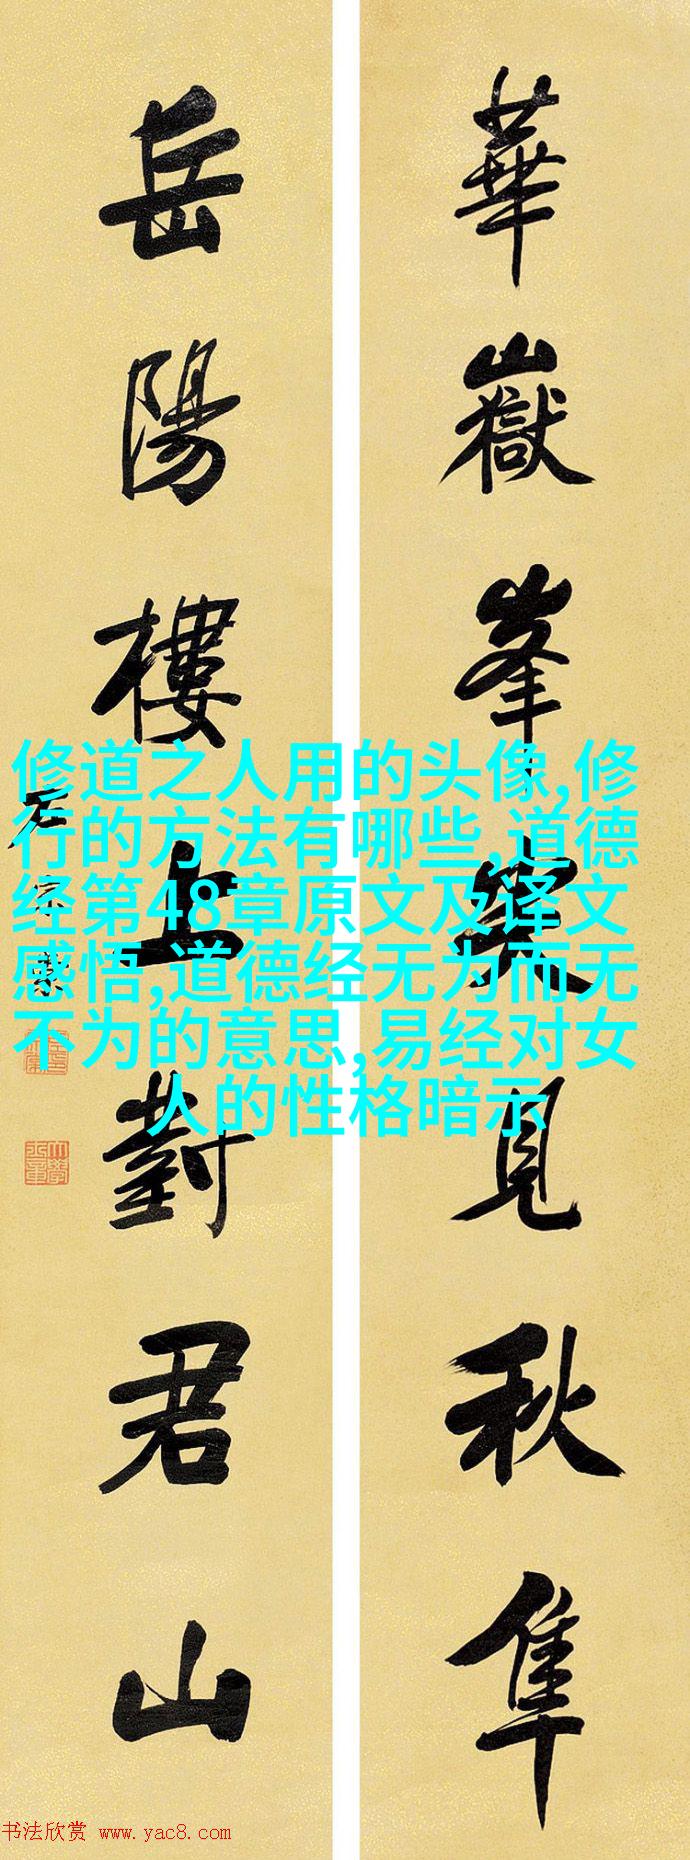 華嶽峯尖見秋隼
岳陽樓上對君山
左宗棠
修道之人用的头像,修
行的方法有哪些,道德
经第48章原文及译文
感悟,道德经无为而无
不为的意思,易经对女
人的性格暗示
书法欣赏 www.yac8.com